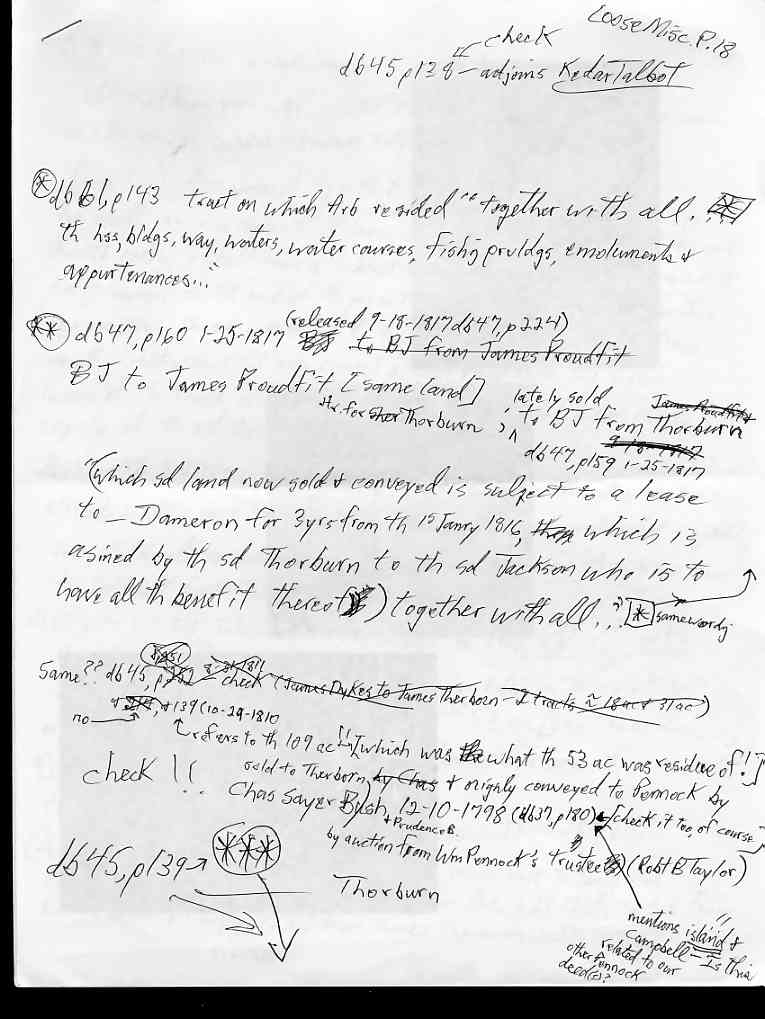 Loose Misc. P. 18
check
db45, p138 — adjoins Kedar Talbot
db61, p143 tract on which Arb resided "together with all...
th hss, bldgs, way, waters, water courses, fishg prvldgs, emoluments &
appurtenances..."
(released 9-18-1817 db47, p224)
** db47, p160 1-25-1817 to BJ from James Proudfit
BJ to James Proudfit [same land]
lately sold
James Proudfit
Thorburn ; to BJ from Thorburn
9-18-1817
db47, p159 1-25-1817
"(which sd land now sold & conveyed is subject to a lease
to — Dameron for 3yrs from th 1st Janry 1816, which is
asined by th sd Thorburn to th sd Jackson who is to
have all th benefit thereof) together with all..." * same wordg.
p251
Same?? db45, check (James Dykes to James Thorborn — 2 tracts ≈ 18ac & 31ac)
no & 139 (10-29-1810
refers to th 109 ac!! [which was what th 53 ac was residue of!]
check !! sold to Thorborn by Chas & orignly conveyed to Pennock by
Chas Sayer Bush, 12-10-1798 (db37, p180) [check it too, of course]
& Prudence B.
by auction from Wm Pennock's trustee (Robt B Taylor)
db45, p139 ***
Thorburn
mentions island &
Campbell — Is this
related to our
other Pennock
deed(s)?